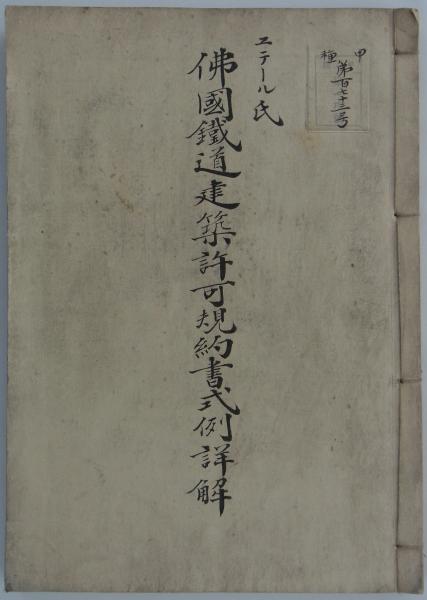 甲種
第百七十三号
ヱテール氏
佛國鐵道建築許可規約書式例詳解